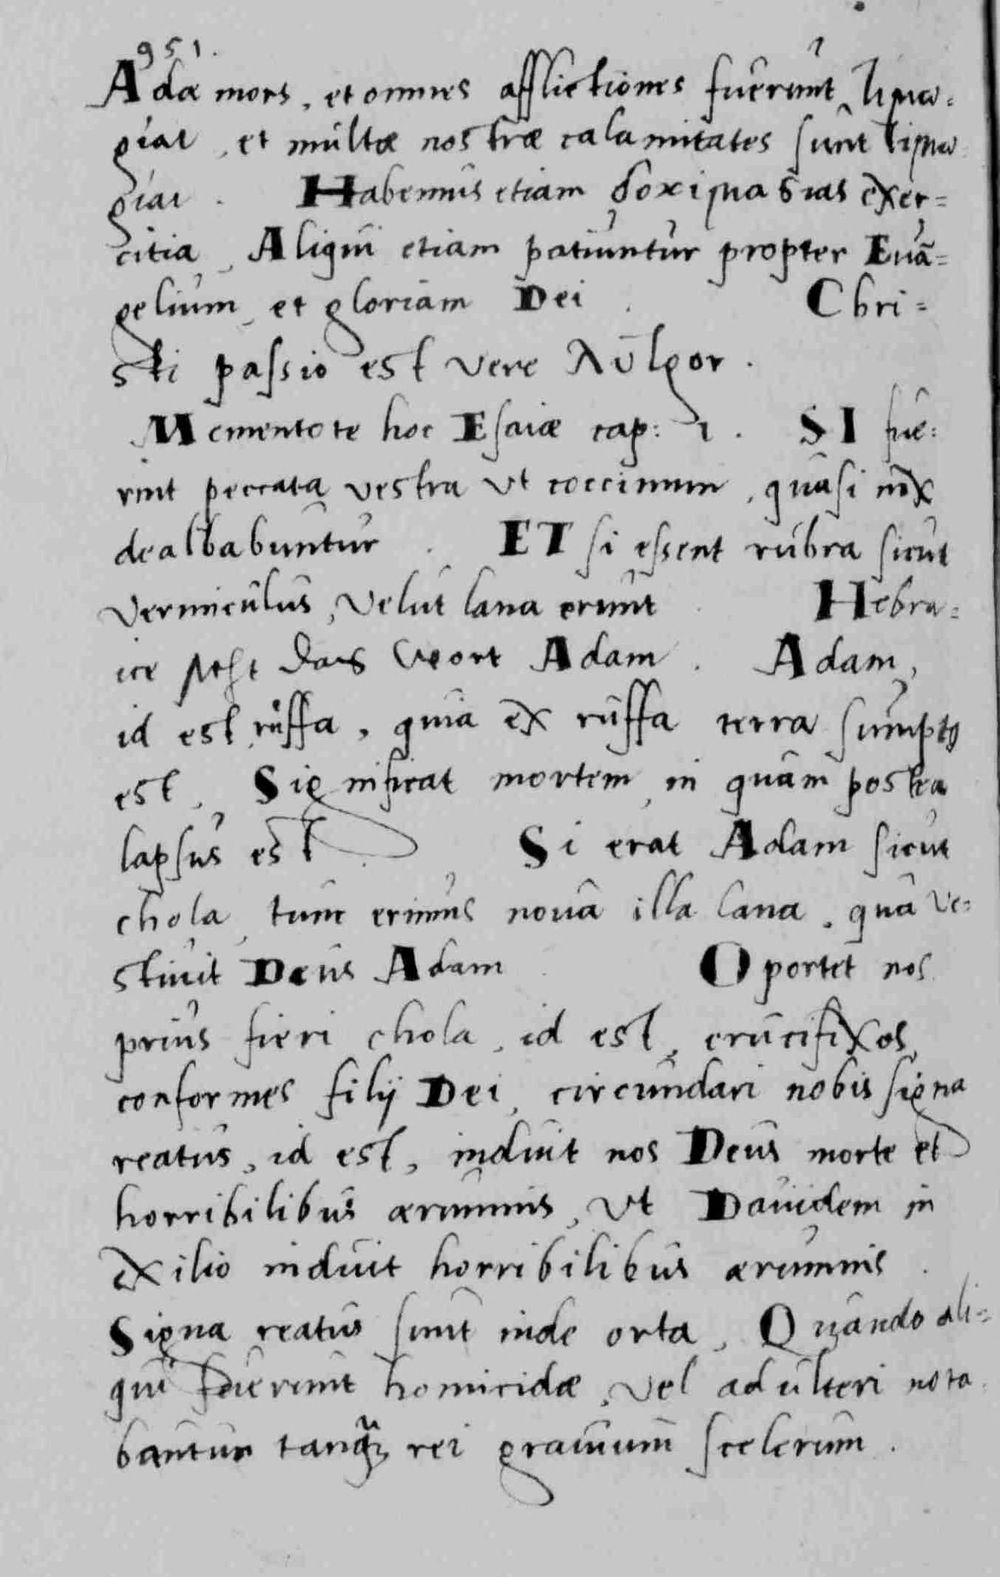 951.
Adæ mors, et omnes afflictiones fuerunt τιμω=
ρίαι, et multæ nostræ calamitates sunt τιμω
ρίαι. Habemus etiam δοκιμασίας exer=
citia, Aliqui etiam patiuntur propter Euā=
gelium, et gloriam Dei. Chri=
sti passio est vere λύτρον.
Mementote hoc Esaiæ cap: 1. SI fue=
rint peccata vestra ut coccinum, quasi nix
dealbabuntur. ET si essent rubra sicut
vermiculus, velut lana erunt. Hebra=
ice steht das wort Adam. Adam,
id est ruffa, quia ex ruffa terra sumptus
est, Significat mortem, in quam postea
lapsus est. Si erat Adam sicut
chola, tunc erimus noua illa lana, qua ve=
stiuit Deus Adam. Oportet nos
prius fieri chola, id est, crucifixos,
conformes filij Dei, circundari nobis signa
reatus, id est, induit nos Deus morte et
horribilibus ærumnis, ut Dauidem in
exilio induit horribilibus ærumnis.
Signa reatus sunt inde orta, Quando ali=
qui fuerunt homicidæ, vel adulteri nota
bantur tanq̃ rei grauium scelerum.